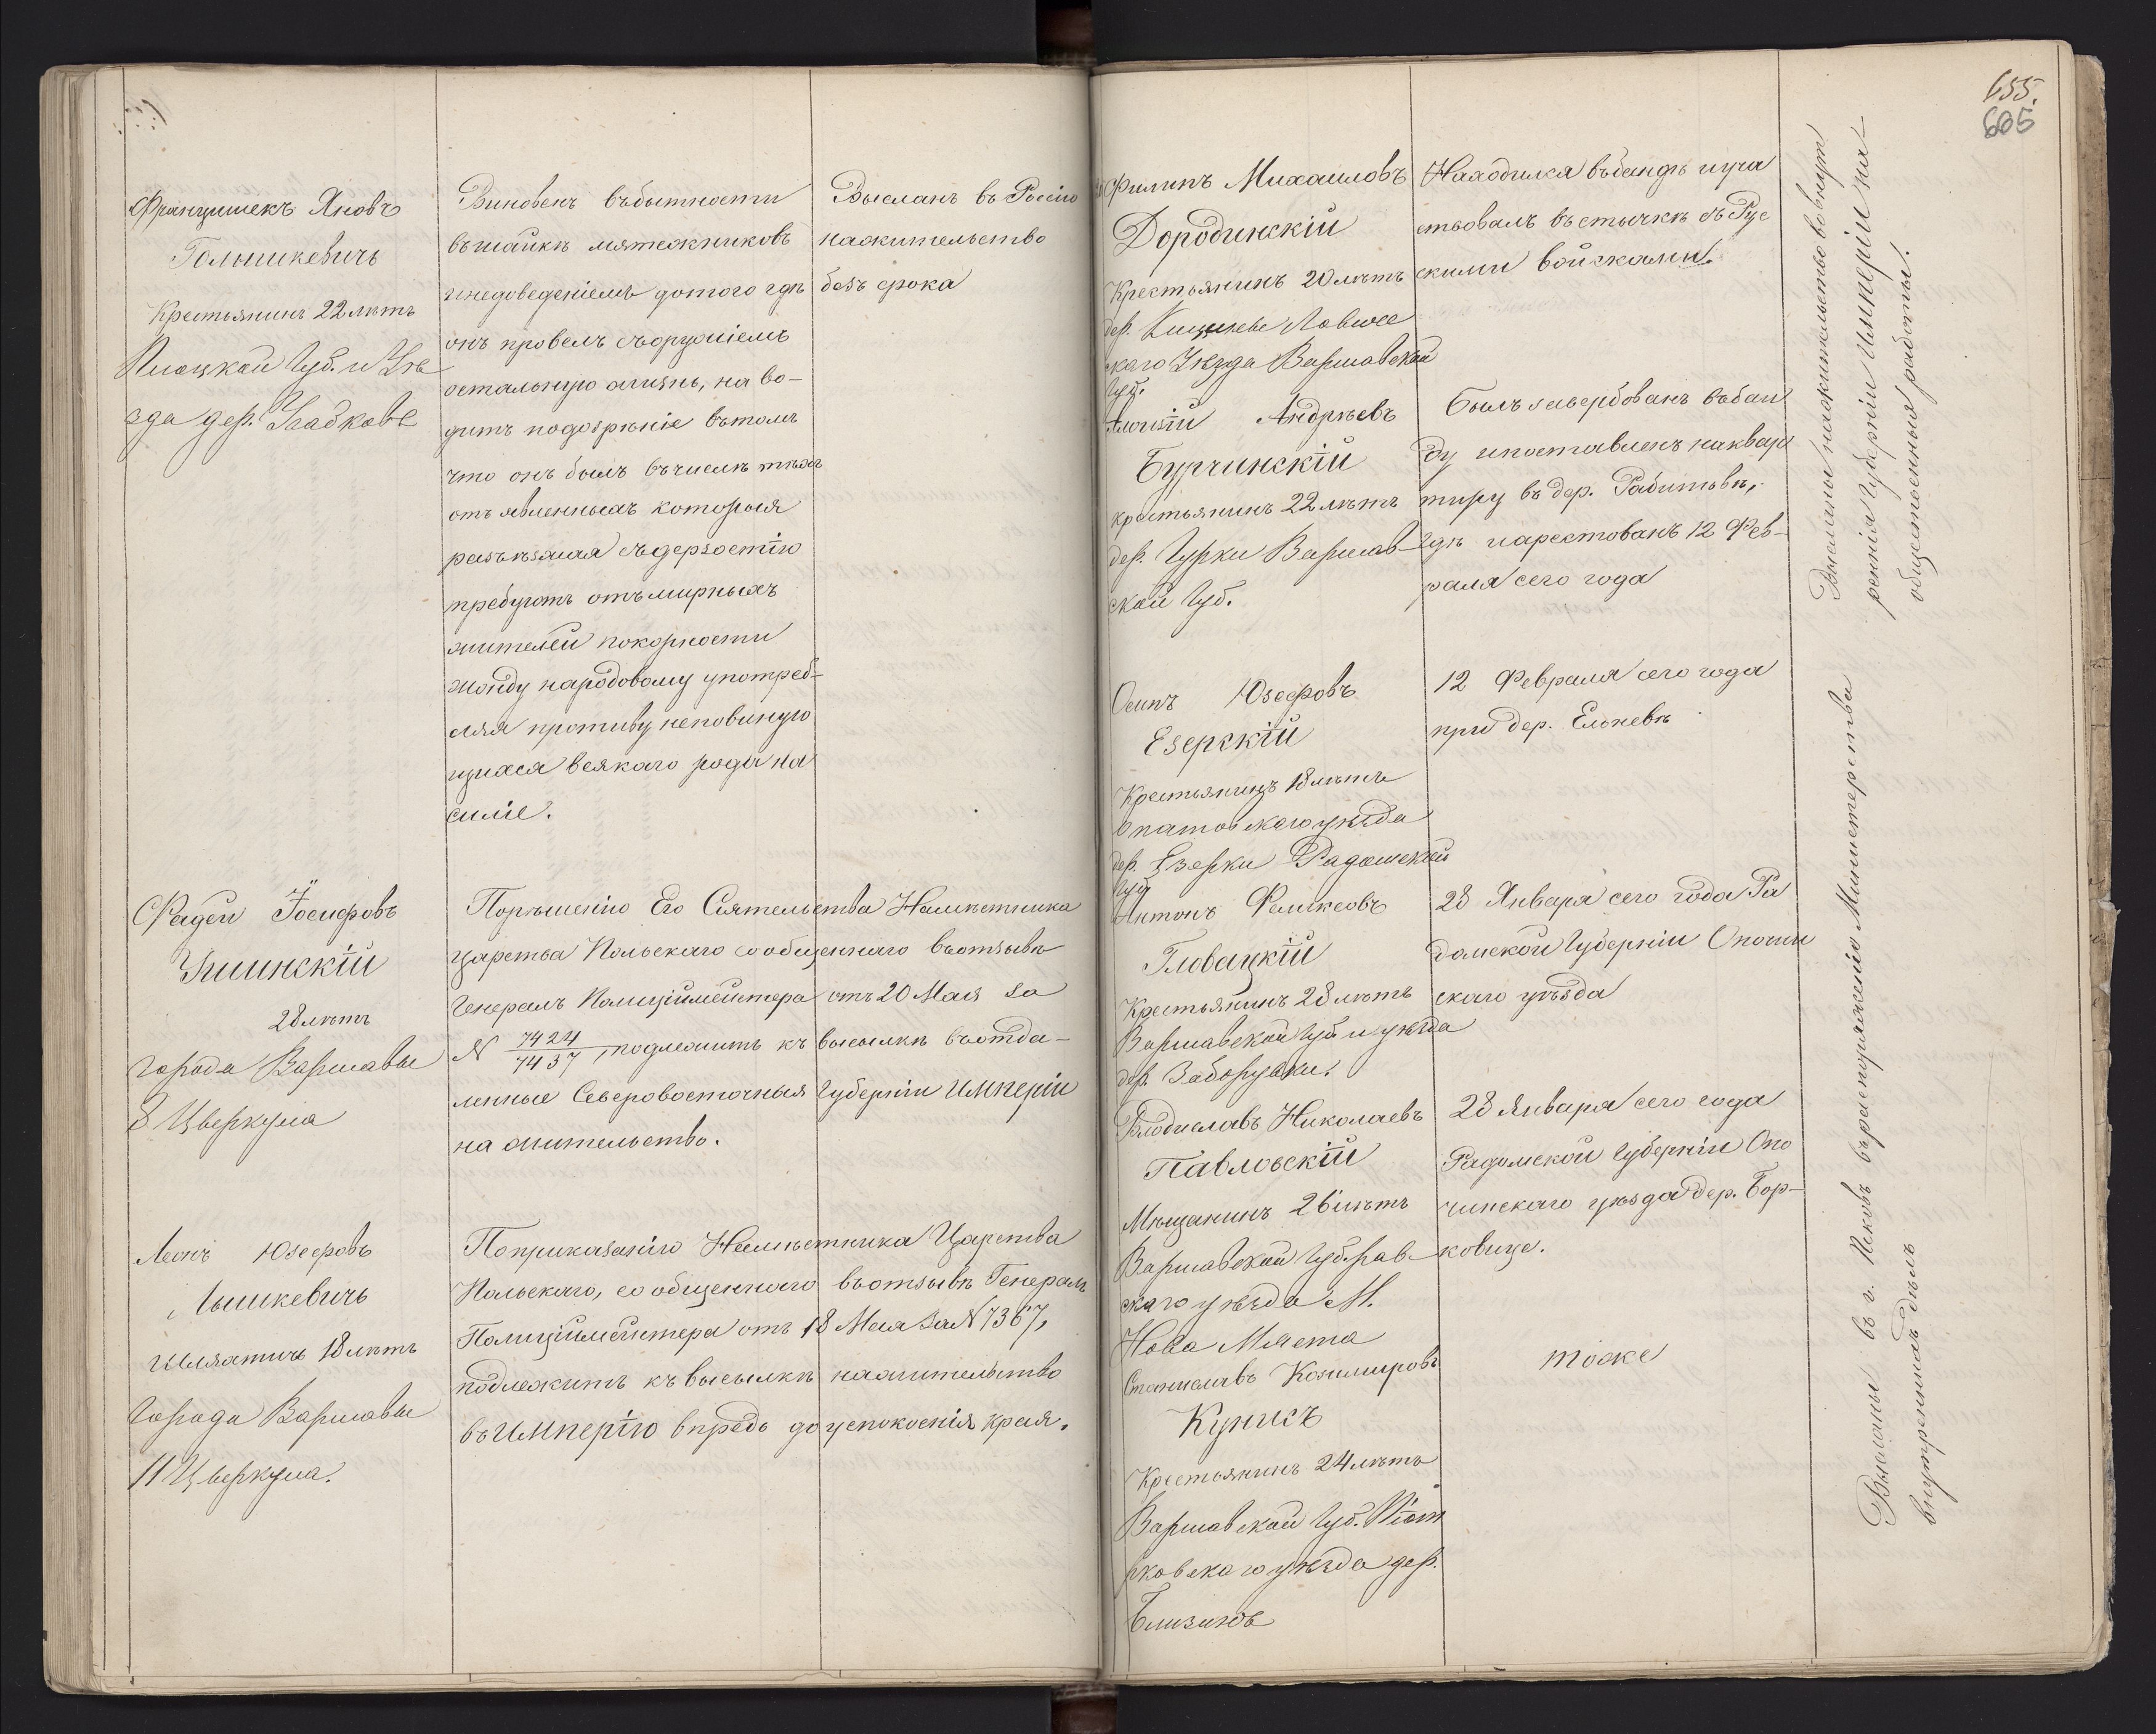 Францишекъ Яновъ
Гольшкевичъ
Крестьянинъ 22 лѣтъ
Плоцкой Губ. и Уѣ
зда дер. Сладкове
Виновенъ въ бытности
въ шайкѣ мятежниковъ
и недоведеніемъ до того гдѣ
онъ провелъ съ оружіемъ
остальную жизнь, на во-
дитъ подозрѣніе въ томъ
что онъ былъ въ числѣ тѣхъ
отъявленныхъ которыя
разъѣзжая съ дерзостію
требуютъ отъ мирныхъ
жителей покорности
жонду народовому употреб-
ляя противу неповиную
щихся всякаго рода на
силіе.
Высланъ въ Россію
на жительство
безъ срока
Фадей Іосифовъ
Ушинскій
28 лѣтъ
города Варшавы
8 Цверкула
По рѣшенію Его Сіятельства Намѣстника
царства Польскаго сообщеннаго въ отзывѣ
Генералъ Полицiймейстера отъ 20 Мая за
N 7424/7437, подлежитъ къ высылкѣ въ отда-
ленные Северовосточныя Губерніи Имперіи
на жительство.
Леонъ Юзефовъ
Лышкевичъ
шляхтичъ 18 лѣтъ
города Варшавы
11 Цверкула.
По приказанію Намѣстника Царства
Польскаго, сообщеннаго въ отзывѣ Генералъ
Полиціймейстера отъ 18 Мая за N 7367,
подлежитъ къ высылкѣ на жительство
въ Имперію впредь до успокоенія края.
655.
605
Филипъ Михаиловъ
Дородинскій
Крестьянинъ 20 лѣтъ
дер. Ловичс
каго Уѣзда Варшавской
Губ.
Находился въ бандѣ и уча
ствовалъ въ стычкѣ съ Рус
скими войсками.
Алоизій Андрѣевъ
Бурчинскій
крестьянинъ 22 лѣтъ
дер. Гурки Варшав-
ской Губ.
Былъ завербованъ въ бан
ду и поставленъ на квар
тиру въ дер. Рабитовѣ,
гдѣ и арестованъ 12 Фев-
раля сего года
Осипъ Юзефовъ
Езерскій
Крестьянинъ 18 лѣтъ
Опатовскаго уѣзда
дер. Езерки Радомской
Губ
12 Февраля сего года
при дер. Ельневѣ
Антонъ Феликсовъ
Гловацкій
Крестьянинъ 28 лѣтъ
Варшавской Губ и уѣзда
дер. Заборувки.
28 Января сего года Ра
домской Губерніи Опочин
скаго уѣзда
Владиславъ Николаевъ
Павловскій
Мѣщанинъ 26 лѣтъ
Варшавской Губ. Рав-
скаго уѣзда М.
Нова Мяста
28 Января сего года
Радомской Губерніи Опо
чинскаго уѣзда дер. Бор-
ковице.
Станиславъ Козимировъ
Куписъ
Крестьянинъ 24 лѣтъ
Варшавской Губ. Піот
рковскаго уѣзда дер.
Близинъ
тоже
Высланы на жительство во внут
ренія Губерніи Имперіи на
общественныя работы.
Высланы въ г. Псковъ въ распоряженіе Министерства
внутреннихъ дѣлъ